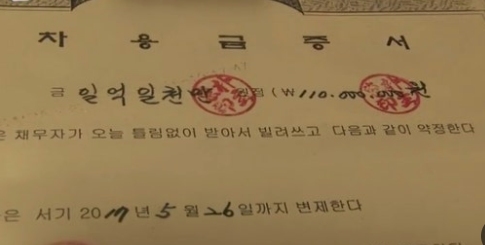 차 용 금 증 서
금 일억일천만 원정 (₩ 110.000.000원
은 채무자가 오늘 틀림없이 받아서 빌려쓰고 다음과 같이 약정한다
은 서기 2017년 5월 26일까지 변제한다